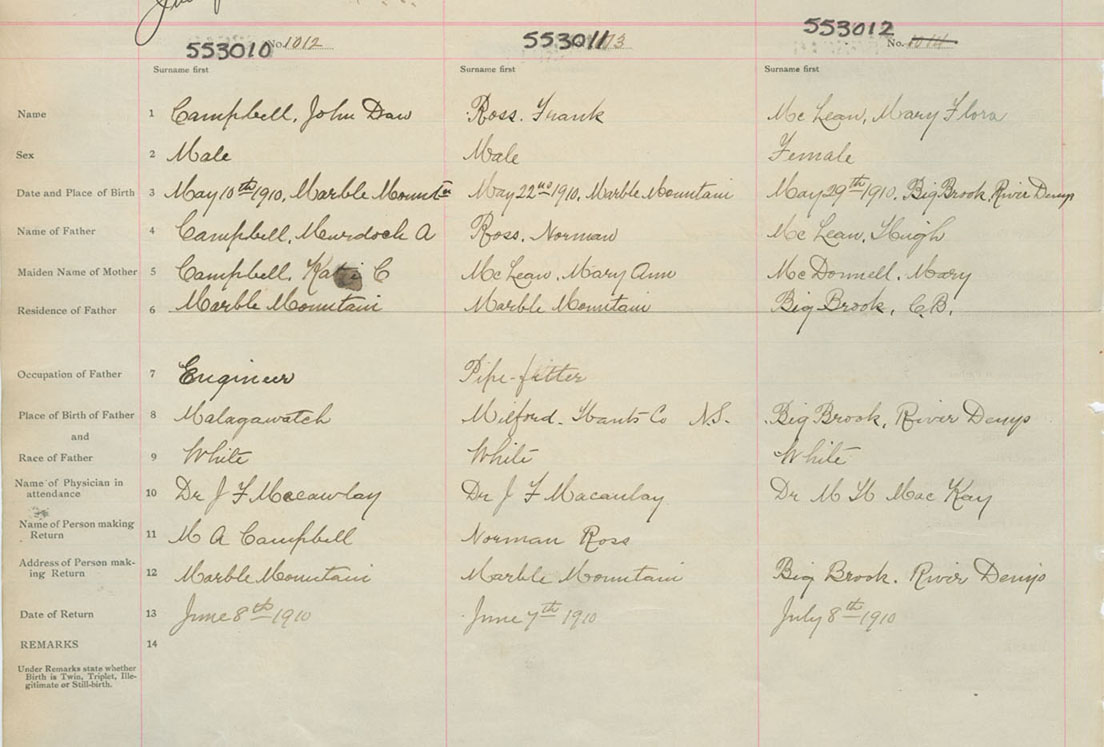 553010 No. 1012 553011 553012 No. 1014
Surname first Surname first Surname first
Name 1 Campbell, John Daw Ross. Frank Mc Lean, Mary Flora
Sex 2 Male Male Female
Date and Place of Birth 3 May 10th 1910, Marble Mountn May 22nd 1910, Marble Mountain May 29th 1910, Big Brook, River Denys
Name of Father 4 Campbell, Murdock A Ross, Norman Mc Lean, Hugh
Maiden Name of Mother 5 Campbell, Katie C Mc Lean, Mary Ann Mc Donnell. Mary
Residence of Father 6 Marble Mountain Marble Mountain Big Brook, C.B.
Occupation of Father 7 Engineer Pipe-fitter
Place of Birth of Father 8 Malagawatch Milford. Hants Co N.S. Big Brook, River Denys
and
Race of Father 9 White White White
Name of Physician in
attendance 10 Dr J F Macawlay Dr J F Macaulay Dr M H Mac Kay
Name of Person making
Return 11 M A Campbell Norman Ross
Address of Person mak-
ing Return 12 Marble Mountain Marble Mountain Big Brook. River Denys
Date of Return 13 June 8th 1910 June 7th 1910 July 8th 1910
REMARKS 14
Under Remarks state whether
Birth is Twin, Triplet, Ille-
gitimate or Still-birth.